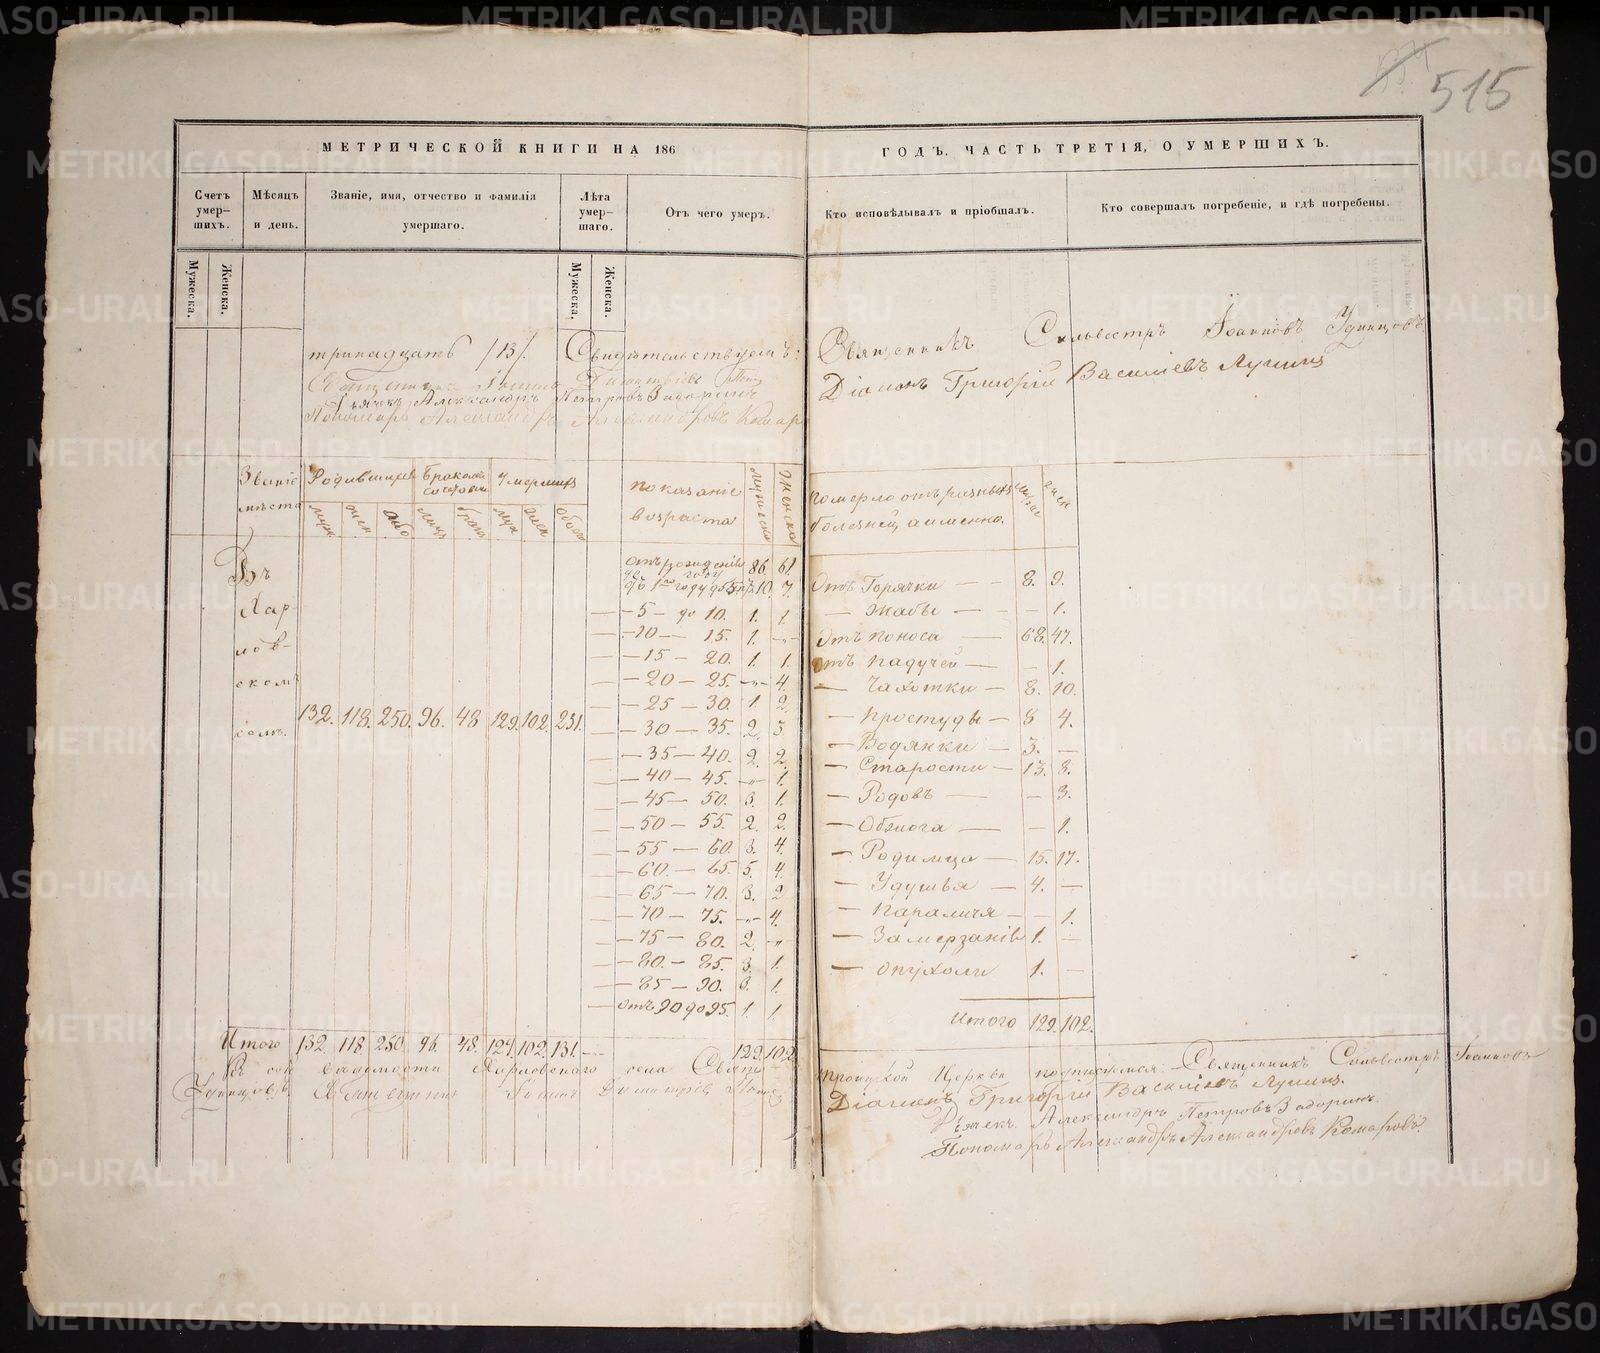 515
МЕТРИЧЕСКОЙ КНИГИ НА 186
ГОДЪ. ЧАСТЬ ТРЕТІЯ, О УМЕРШИХЪ.
Счетъ умер-шихъ. Мѣсяцъ и день. Званіе, имя, отчество и фамилія умершаго. Лѣта умер-шаго. Отъ чего умеръ. Кто исповѣдывалъ и пріобщалъ. Кто совершалъ погребеніе, и гдѣ погребены.
Мужеска. Женска. Мужеска. Женска.
тринадцать /13/. Свидѣтельствуемъ:
Священникъ Іоаннъ Димитріевъ Поп
Дьячекъ Александръ Петровъ Задоринъ
Пономарь Александръ Александровъ Комар
Священникъ Сильвестръ Іоанновъ Удинцовъ
Діаконъ Григорій Василіевъ Лукиныхъ
Званіе мѣста Родившихся Бракомъ сочетан. Умершихъ
муж. жен. обо лицъ брак. муж. жен. обоего
Въ Харловскомъ селѣ. 132. 118. 250. 96. 48 129. 102. 231.
Показаніе возраста мужеска женска
Отъ рожденія до году 86. 61.
До 1го году до 5 10. 7.
—5— до 10. 1. 1.
—10— 15. 1. —"—
—15— 20. 1. 1.
—20— 25. —"— 4.
—25— 30. 1. 2.
—30— 35. 2. 3
—35—40. 2. 2.
—40— 45. —"— 1.
—45— 50. 3. 1.
—50— 55. 2. 2.
—55— 60. 3. 4.
—60.— 65. 5. 4.
—65— 70. 3. 2
—70— 75. —"— 4.
—75— 80. 2. —"
—80.— 85. 3. 1.
—85— 90. 3. 1.
Отъ 90 до 95. 1. 1.
Померло отъ разныхъ болезней, а именно.
Отъ Горячки — — 8. 9.
— Жабы — — — 1.
Отъ поноса — 68. 47.
Отъ падучей — — 1.
— Чахотки — 8. 10.
— Простуды — 8 4.
— Водянки — 3. —
— Старости — 13. 8.
— Родовъ — — 3.
— Обжога — — 1.
— Родимца — 15. 17.
— Удушья — 4. —
— Параличя — — 1.
— Замерзанія 1. —
— Опухоли 1. —
Итого 129. 102.
Итого 132 118 250 96. 48. 129. 102. 131. — 129. 102
Къ сей вѣдомости Харловскаго села Свято
Троицкой Церкви подписуемся: Священникъ Сильвестръ Іоанновъ
Удинцовъ Священникъ Іоаннъ Димитріев Попов
Діаконъ Григорій Василіевъ Лукиныхъ.
Дьячекъ Александръ Петровъ Задоринъ.
Пономарь Александръ Александровъ Комаровъ.
METRIKI.GASO-URAL.RU